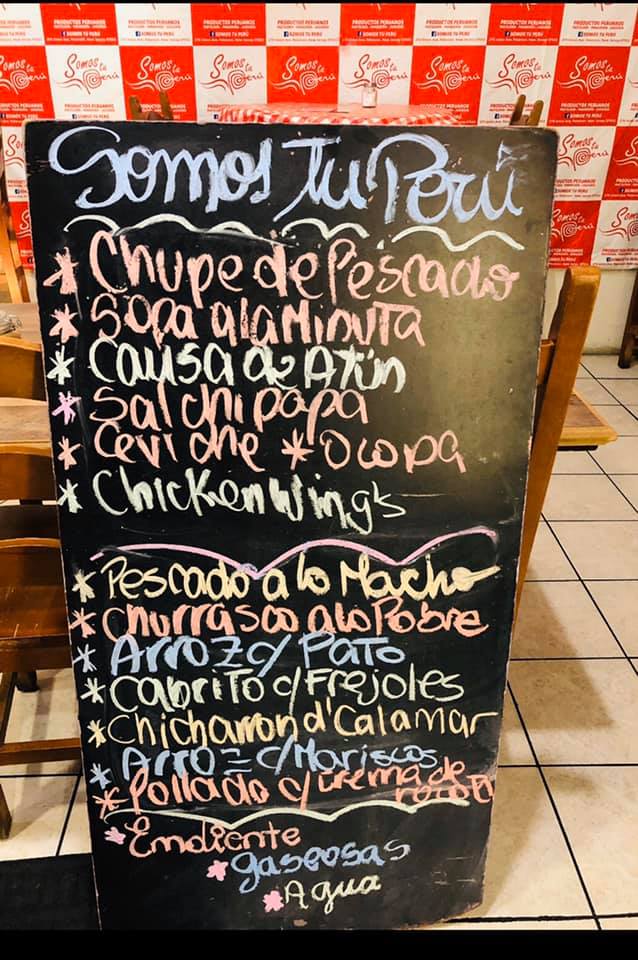 Somos Tu Perú
* Chupe de Pescado
* Sopa a la Minuta
* Causa de Atún
* Salchipapa
* Ceviche * Ocopa
* Chicken Wing's
* Pescado a lo Macho
* Churrasco a lo Pobre
* Arroz c/ Pato
* Cabrito c/ Frejoles
* Chicharron d' Calamar
* Arroz c/ Mariscos
* Pollado c/ crema de
* Emoliente
* gaseosas
* Agua
PRODUCTOS PERUANOS
SOMOS TU PERÚ
Somos tu Perú